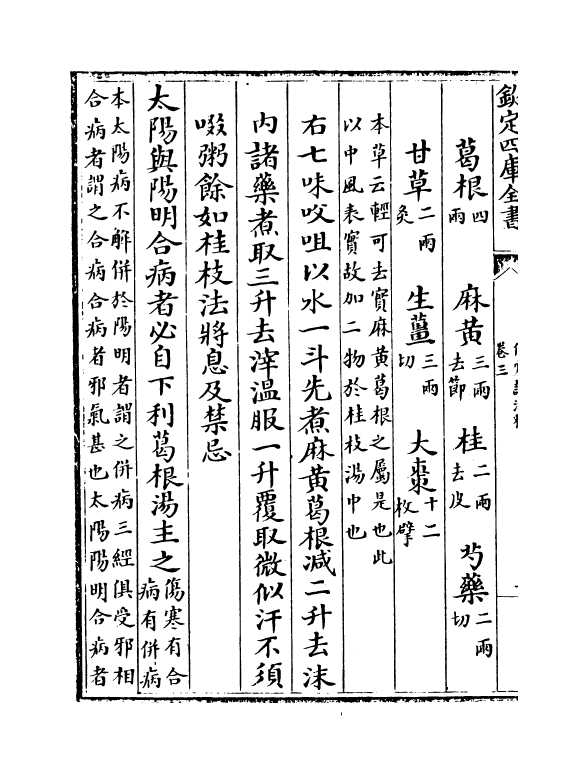 欽定四庫全書
卷三
葛根四兩 麻黄三兩去節 桂二兩去皮 芍藥二兩切
甘草二兩炙 生薑三兩切 大棗十二枚擘
本草云輕可去實麻黄葛根之屬是也此
以中風表實故加二物於桂枝湯中也
右七味㕮咀以水一斗先煮麻黄葛根减二升去沫
内諸藥煮取三升去滓温服一升覆取微似汗不須
啜粥餘如桂枝法將息及禁忌
太陽與陽明合病者必自下利葛根湯主之傷寒有合病有併病
本太陽病不解併於陽明者謂之併病三經俱受邪相
合病者謂之合病合病者邪氣甚也太陽陽明合病者